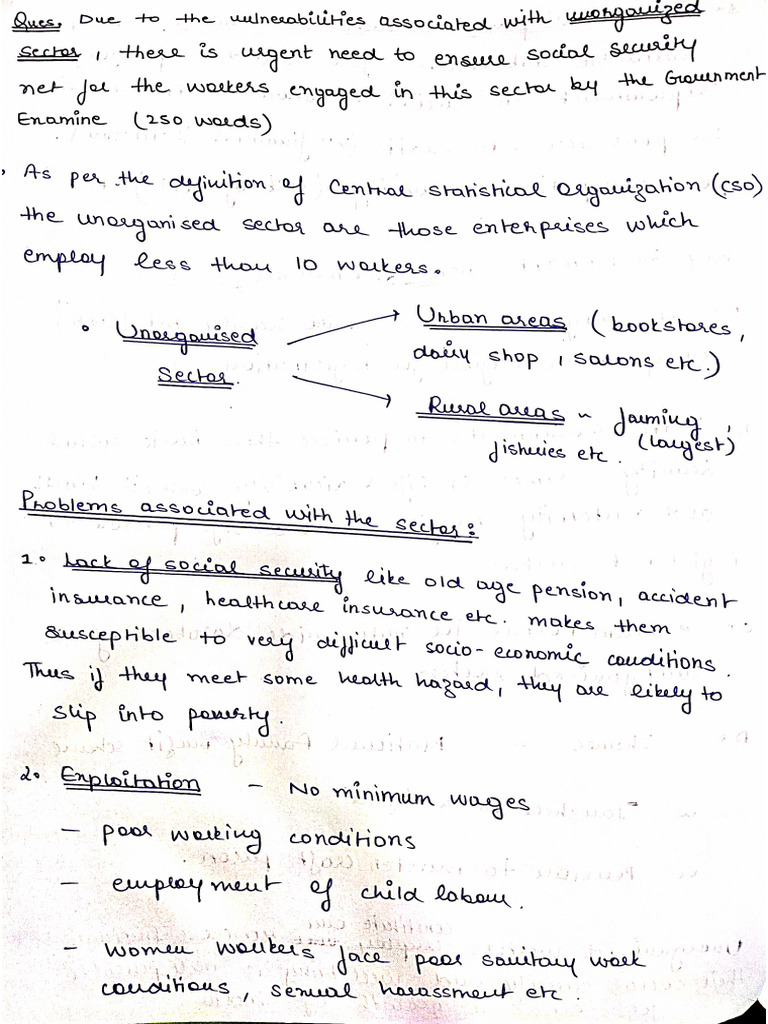 Ques. Due to the vulnerabilities associated with unorganized
sector, there is urgent need to ensure social security
net for the workers engaged in this sector by the Government
Examine (250 words)
As per the definition of Central Statistical Organization (CSO)
the unorganised sector are those enterprises which
employ less than 10 workers.
• Unorganised Sector.
Urban areas (bookstores,
dairy shop, salons etc.)
Rural areas ~ farming,
fisheries etc. (largest)
Problems associated with the sector:
1. Lack of social security like old age pension, accident
insurance, healthcare insurance etc. makes them
susceptible to very difficult socio-economic conditions.
Thus if they meet some health hazard, they are likely to
slip into poverty.
2. Exploitation - No minimum wages
- poor working conditions
- employment of child labour.
- women workers face poor sanitary work
conditions, sexual harassment etc.